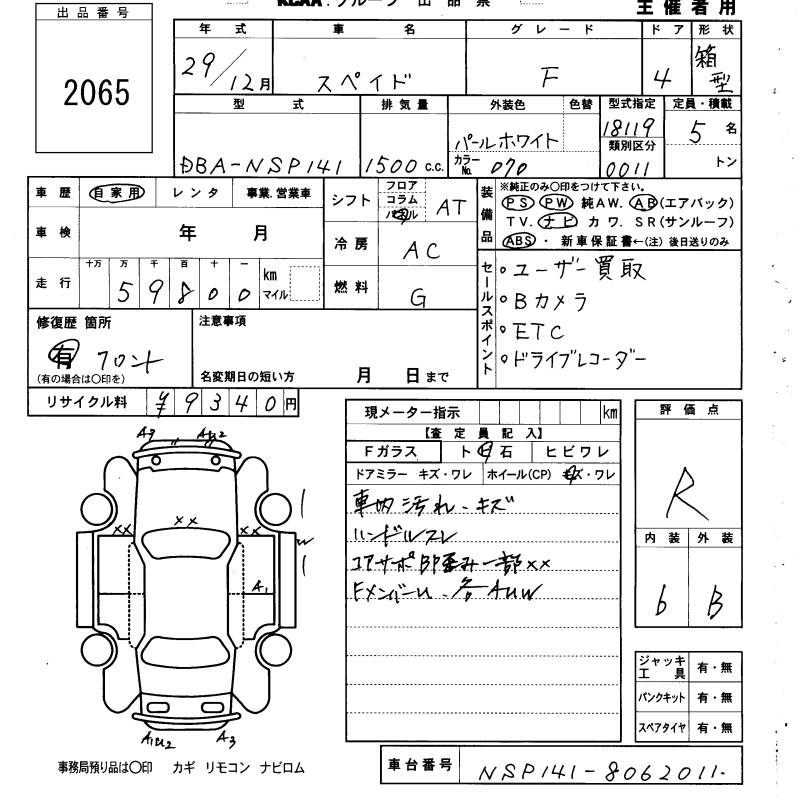 KCAA.グループ 出品票 主催者用
出品番号
2065
年式 車名 グレード ドア 形状
29/12月 スペイド F 4 箱型
型式 排気量 外装色 色替 型式指定 定員・積載
DBA-NSP141 1500 c.c. パールホワイト 18119 5 名
カラーNo. 070 類別区分 0011 トン
車歴 自家用 レンタ 事業.営業車
車検 年 月
走行 十万 万 千 百 十 一 km マイル
59800
シフト フロア コラム パネル AT
冷房 AC
燃料 G
装備品 ※純正のみ〇印をつけて下さい。
PS PW 純AW. AB(エアバック)
TV. ナビ カワ. SR(サンルーフ)
ABS ・ 新車保証書←(注)後日送りのみ
セールスポイント
○ユーザー買取
○Bカメラ
○ETC
○ドライブレコーダー
修復歴 箇所
有 フロント
(有の場合は〇印を)
注意事項
名変期日の短い方 月 日まで
リサイクル料 ¥9340円
A3 AU2
xx xx xx
w
A1
A1U2 A3
現メーター指示 km
【査定員記入】
Fガラス ト日石 ヒビワレ
ドアミラー キズ・ワレ ホイール(CP) キズ・ワレ
車内汚れ・キズ
ハンドルスレ
コアサポ部歪み一部xx
FメンバーU、各AUW
評価点
R
内装 外装
b B
ジャッキ工具 有・無
パンクキット 有・無
スペアタイヤ 有・無
事務局預り品は〇印 カギ リモコン ナビロム
車台番号 NSP141-8062011.